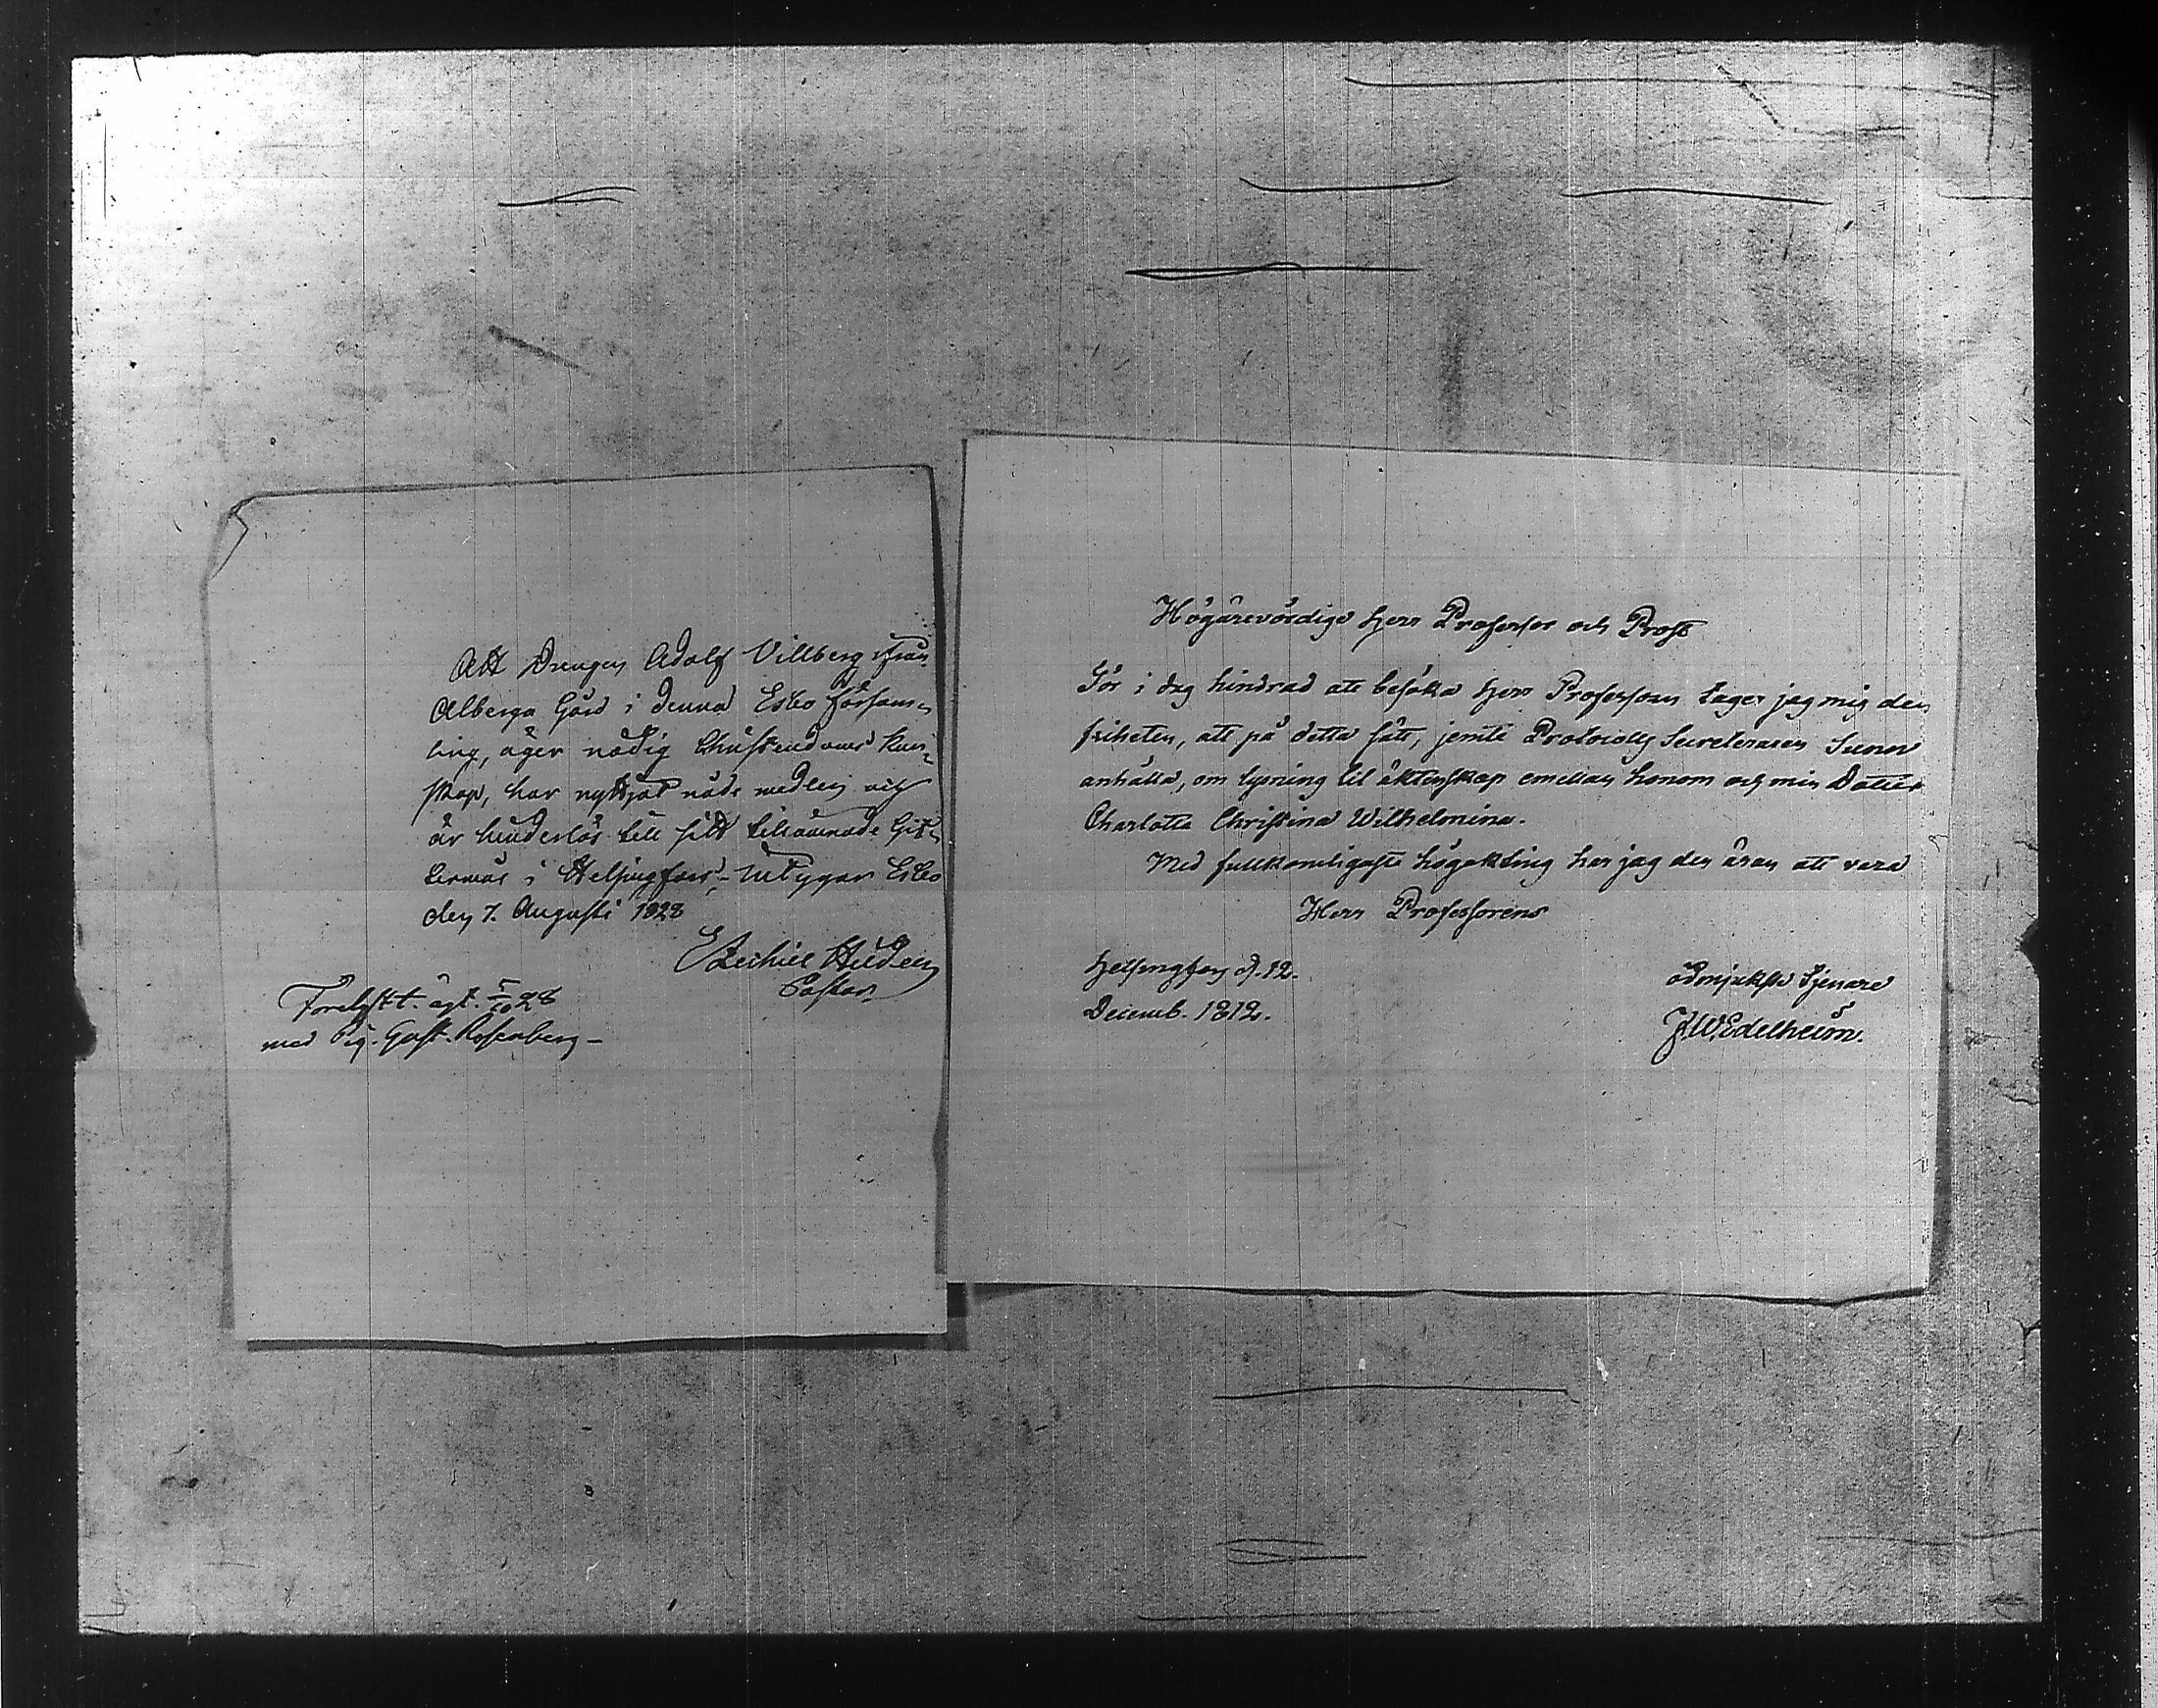 Att Drengen Adolf Villberg ifrån
Alberga Gård i denna Esbo försam-
ling, äger nödig Christendoms kun-
skap, har nyttjat nåde medlen och
är hinderlös till sitt tillämnade Gif-
termål i Helsingfors, - intygar Esbo
den 7. Augusti 1828
Ezechiel Hidén
Pastor
Forelystt. ägt. 5/10 28
med Pig. Gust. Rosenberg -
Högärevördige Herr Professor och Prost
För i dag hindrad att besöka Herr Professorn tager jag mig den
friheten, att på detta sätt, jemte Protocolls Secreteraren Sunn
anhålla, om lysning til äktenskap emellan honom och min Dotter
Charlotta Christina Wilhelmina.
Med fullkomligaste högakting har jag den äran att vara
Herr Professorens
Helsingfors d. 12.
Decemb. 1812.
ödmjukste Tjenare
J.W. Edelheim.